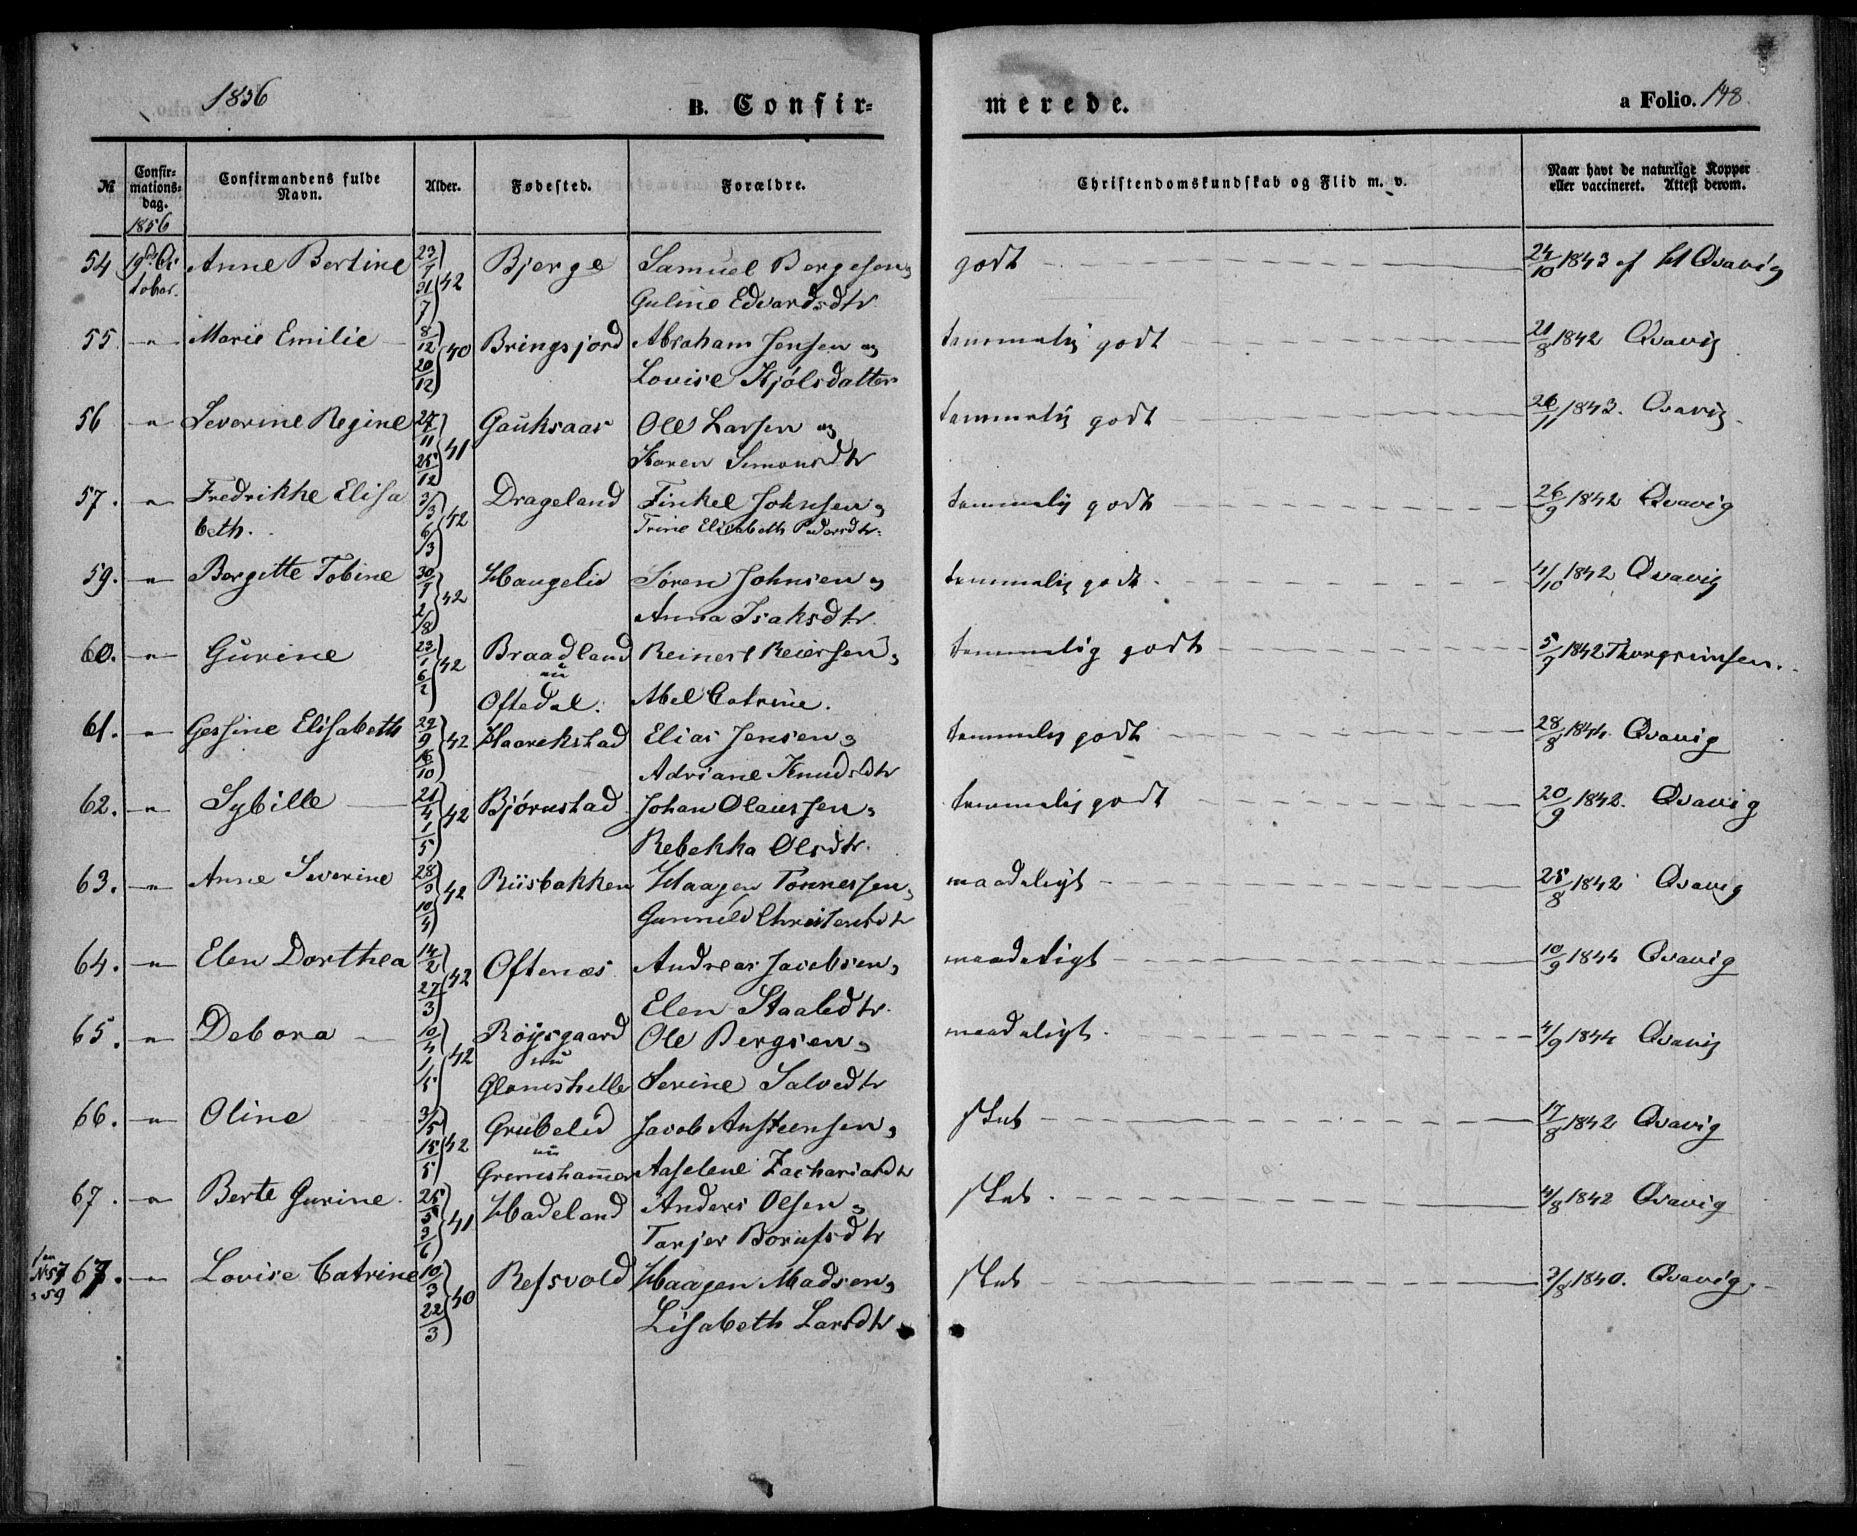 1856
B. Confir-
merede.
a Folio. 148.
№
Confir-
mations-
dag.
Confirmandens fulde
Navn.
Alder.
Fødested.
Forældre.
Christendomskundskab og Flid m. v.
Naar havt de naturlige Kopper
eller vaccineret. Attest derom.
1856
54 19de Oc Anne Bertine 23/7 Bjerge Samuel Bergesen og godt 24/10 1843 af Qvavig
tober. 31/7 42 Guline Edvardsdtr
55 " Marie Emilie 8/12 40 Bringsjord Abraham Jensen og temmelig godt 21/8 1842 Qvavig
20/12 Lovise Kjølsdatter
56 " Severine Regine 27/11 41 Gauksaas Ole Larsen og temmelig godt 26/11 1843. Qvavig
25/12 Karen Simonsdtr
57. " Fredrikke Elisa 3/3 42 Drageland Finkel Johnsen og temmelig godt 26/9 1842 Qvavig
beth. 6/3 Trine Elisabeth Pedersdtr.
59. " Bergitte Tobine 30/7 42 Haugelid Søren Johnsen og temmelig godt 4/10 1842 Qvavig
2/8 Anna Isaksdtr.
60. " Gurine 23/1 42 Braadland Reinert Reiersen og temmelig godt 5/7 1842 Thorgrimsen.
6/2 nu
Oftedal. Abel Catrine.
61. " Gessine Elisabeth 29/9 42 Haarikstad Elias Jensen og temmelig godt 28/8 1844 Qvavig
16/10 Adriane Knudsdtr
62. " Sybille 21/4 42 Bjørnstad Johan Olaussen og temmelig godt 20/9 1842. Qvavig
1/5 Rebekka Olsdtr.
63. " Anne Severine 28/3 42 Riisbakken Haagen Tønnessen og maadeligt 25/8 1842 Qvavig
10/4 Gunnild Christensdtr
64. " Elen Dorthea 14/2 42 Oftenæs Andreas Jacobsen og maadeligt 10/9 1844 Qvavig
27/3 Elen Staaledtr.
65. " Debora 10/4 42 Røysgaard Ole Bergsen og maadeligt 4/9 1844 Qvavig
1/5 nu
Glomshelle Serine Salvedtr
66. " Oline 3/5 42 Grubelid Jacob Austensen og slet 17/8 1842 Qvavig
15/5 nu
Gremshammer Aaselene Zachariasdtr
67. " Berte Gurine 25/5 41 Hadeland Anders Olsen og slet 4/8 1842 Qvavig
3/6 Tarjer Borufsdtr
67. " Lovise Catrine 10/3 40 Refsvold Haagen Madsen og slet 2/8 1840. Qvavig.
No 57
59 22/3 Lisabeth Larsdtr